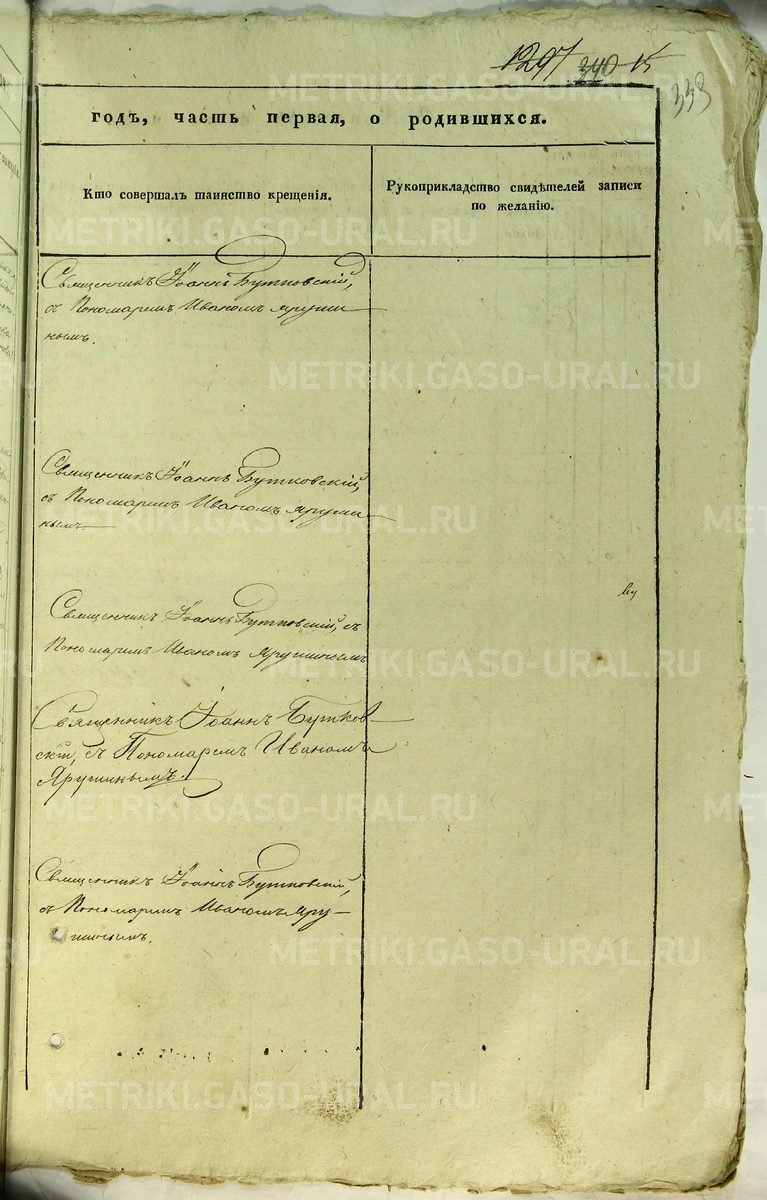 1297 340 15
333
годъ, часть первая, о родившихся.
Кто совершалъ таинство крещенія.
Рукоприкладство свидѣтелей записи
по желанію.
Священникъ Іоаннъ Бутковскій,
съ Пономаремъ Иваномъ Яруши
нымъ.
Священникъ Іоаннъ Бутковскій,
съ Пономаремъ Иваномъ Яруши
нымъ.
Священникъ Іоаннъ Бутковскій, съ
Пономаремъ Иваномъ Ярушинымъ
Священникъ Іоаннъ Бутков
скій, съ Пономаремъ Иваномъ
Ярушинымъ.
Священникъ Іоаннъ Бутковскій,
съ Пономаремъ Иваномъ Яру-
шинымъ.
METRIKI.GASO-URAL.RU